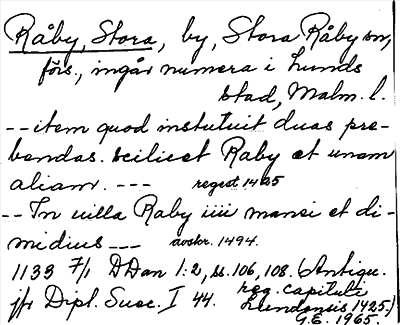 Råby, Stora, by, Stora Råby sn,
förs., ingår numera i Lunds
stad, Malm. l.
-- item quod instutuit duas pre-
bendas. scilicet Raby et unam
aliam. --- regest 1425
-- In uilla Raby iiii mansi et di-
midius --- avskr. 1494.
1133 7/1 DDan 1:2, ss. 106, 108. (Antiqu.
jfr Dipl. Suec. I 44. reg. capituli
Lundensis 1425.)
G.E. 1965.